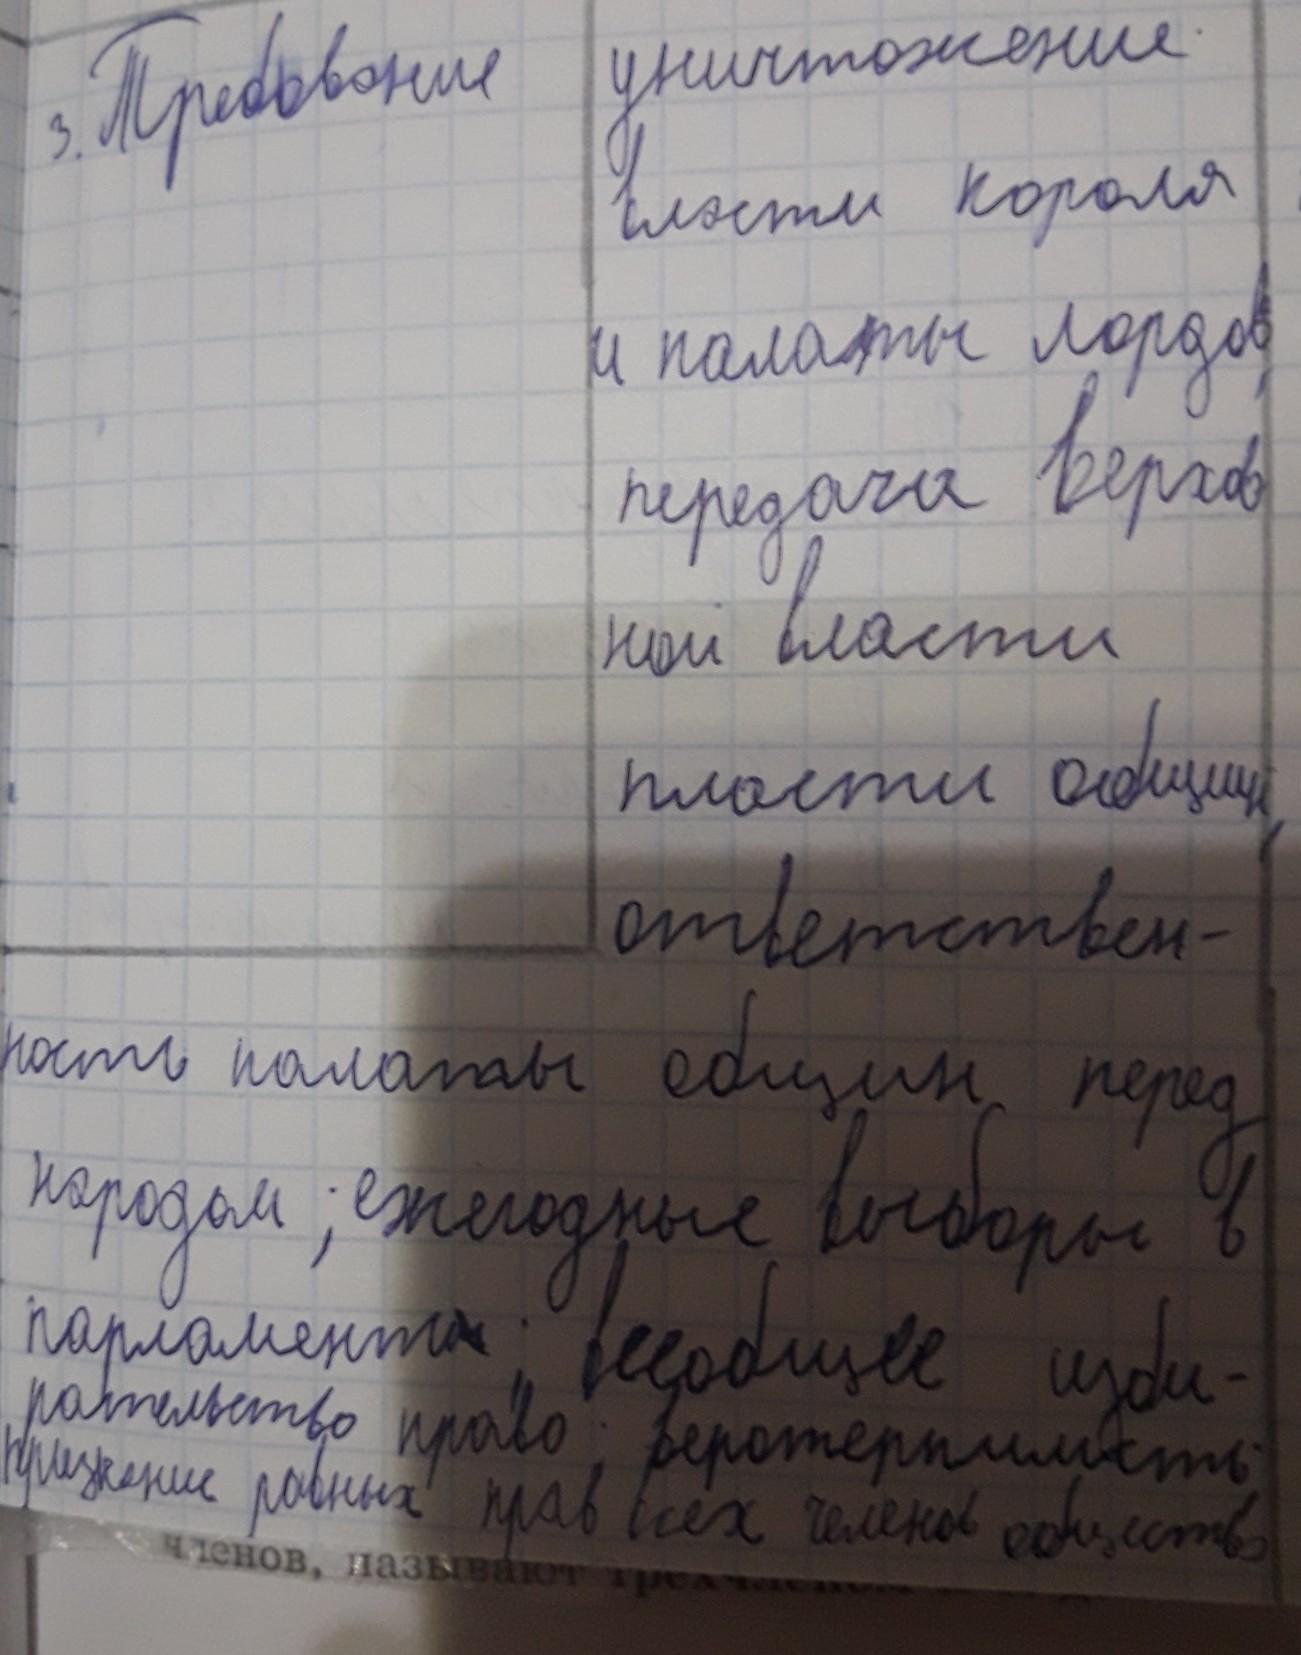 3. Требование
уничтожение
власти короля
и палаты лордов,
передача верхов
ной власти
пласти общин,
ответствен-
ность палаты общин перед
народом; ежегодные выборы в
парламент; всеобщее изби-
рательство право; веротерпимость
признание равных прав всех членов общества
членов, называют трёхчленом